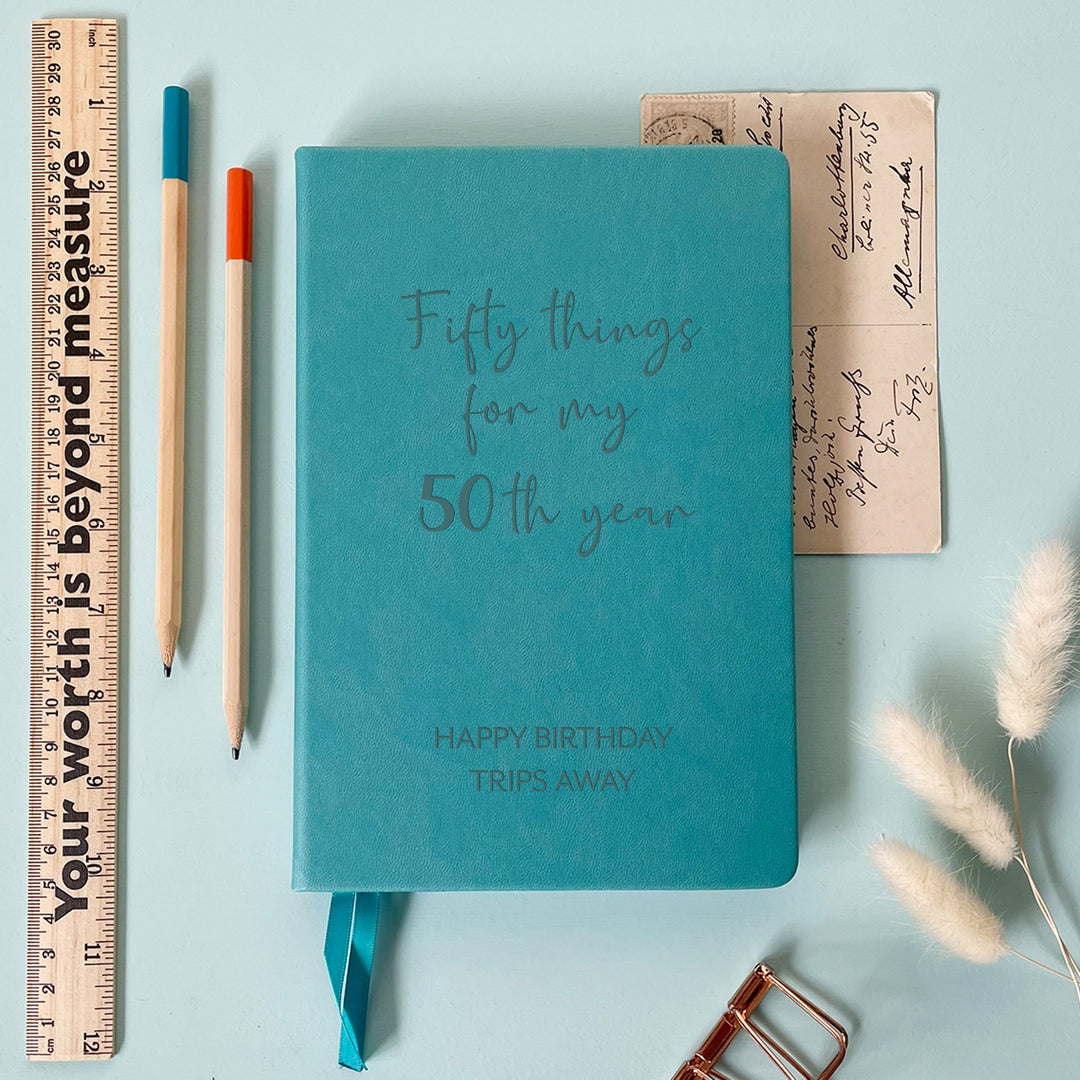 Fifty things
for my
50th year
HAPPY BIRTHDAY
TRIPS AWAY
Your worth is beyond measure
inch
1
2
3
4
5
6
7
8
9
10
11
12
30
29
28
27
26
25
24
23
22
21
20
19
18
17
16
15
14
13
12
11
10
9
8
7
6
5
4
3
2
1
cm
Charlottenburg
Allemagne